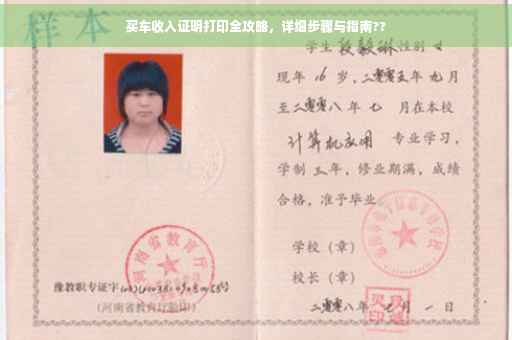 买车收入证明打印全攻略，详细步骤与指南??
样本
学生段毅琳性别女
现年16岁，二零零五年九月
至二零零八年七月在本校
计算机应用 专业学习，
学制三年，修业期满，成绩
合格，准予毕业。
学校（章）
校长（章）
二零零八年七月一日
河南省教育厅
豫教职专证字
（河南省教育厅验印）
验印